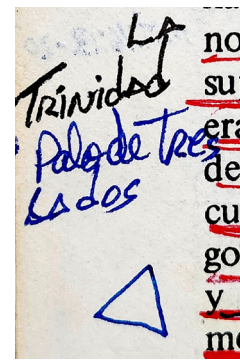 LA
TRINIDAD
Palo de TRES
LADOS
no
su
era
de
cu
go
y
me